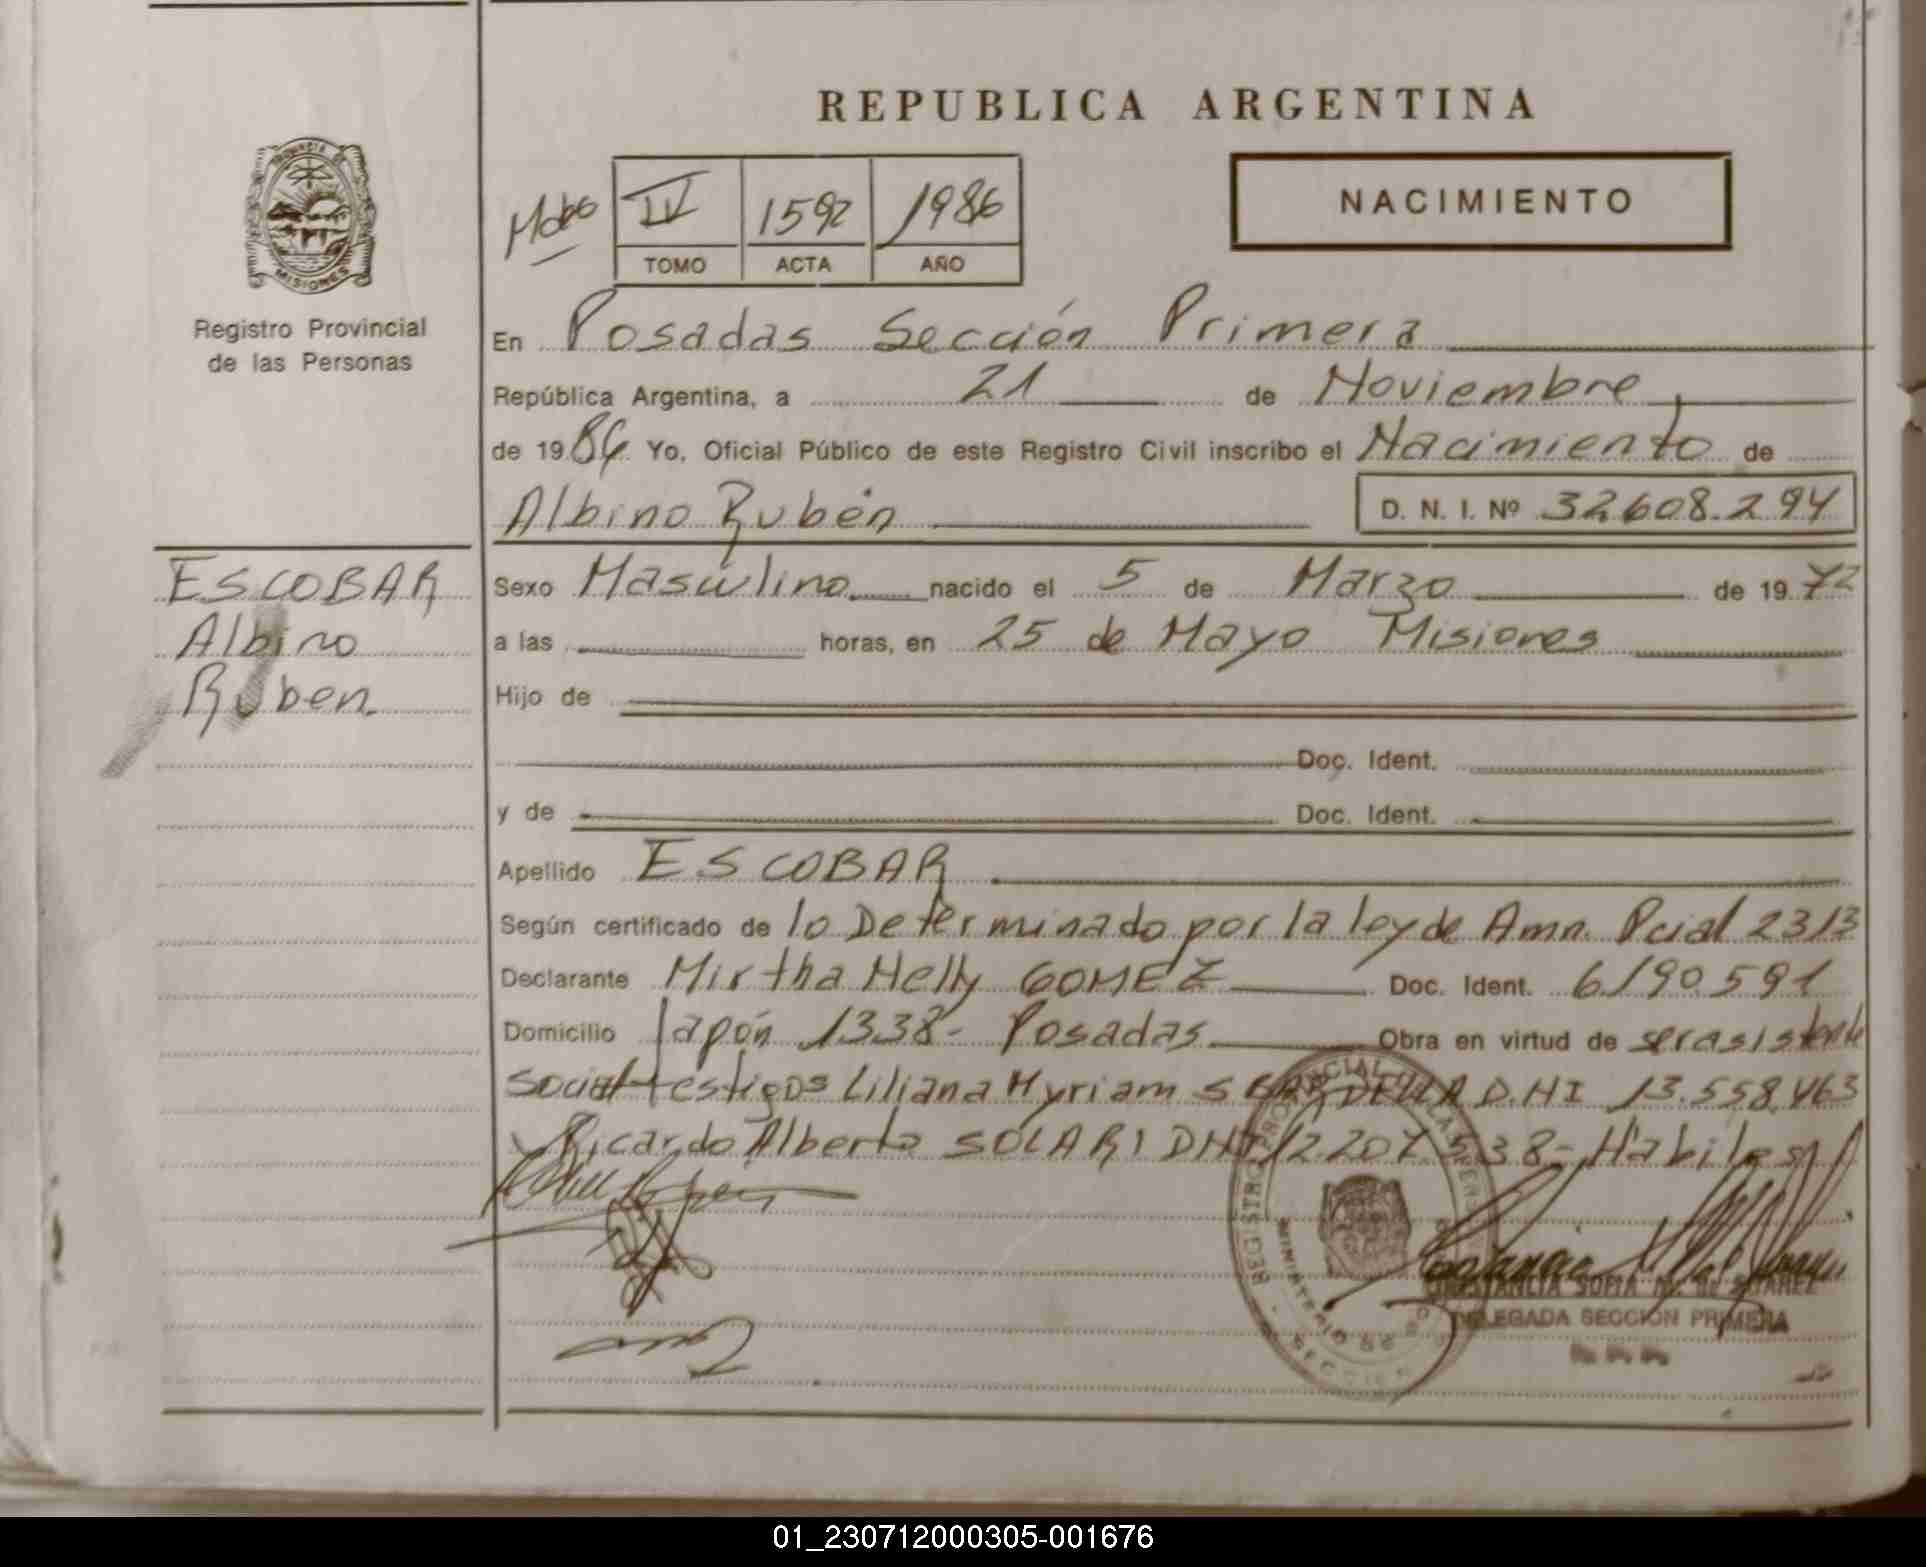 REPUBLICA ARGENTINA
PROVINCIA DE
MISIONES
Registro Provincial
de las Personas
IV 1592 1986
TOMO ACTA AÑO
NACIMIENTO
En Posadas Sección Primera
República Argentina, a 21 de Noviembre
de 1986 Yo, Oficial Público de este Registro Civil inscribo el Nacimiento de
Albino Rubén D. N. I. Nº 32.608.294
ESCOBAR
Albino
Ruben.
Sexo Masculino nacido el 5 de Marzo de 1972
a las horas, en 25 de Mayo Misiones
Hijo de
Doc. Ident.
y de Doc. Ident.
Apellido ESCOBAR
Según certificado de lo Determinado por la ley de Amn. Pcial 2313
Declarante Mirtha Nelly GOMEZ Doc. Ident. 6190591
Domicilio Japón 1338- Posadas Obra en virtud de ser asistente
social testigos Liliana Myriam D.NI 13.558.463
y Ricardo Alberto SOLARI DNI 12.207.538- Habiles
REGISTRO PROVINCIAL DE LAS PERSONAS
MINISTERIO DE
CONSTANCIA SOFIA M. de SUAREZ
DELEGADA SECCION PRIMERA
01_230712000305-001676